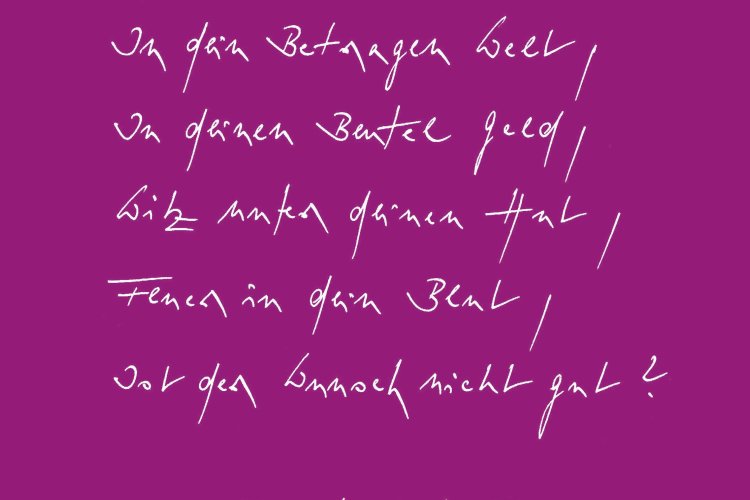 In dein Betragen Welt,
In deinen Beutel Geld,
Witz unter deinen Hut,
Feuer in dein Blut,
Ist der Wunsch nicht gut?